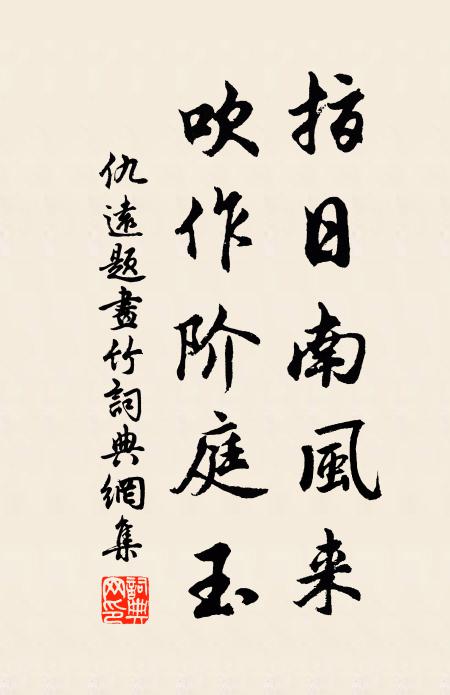 指日南風来
吹作阶庭玉
仇遠題畫竹詞典網集
詞典網印